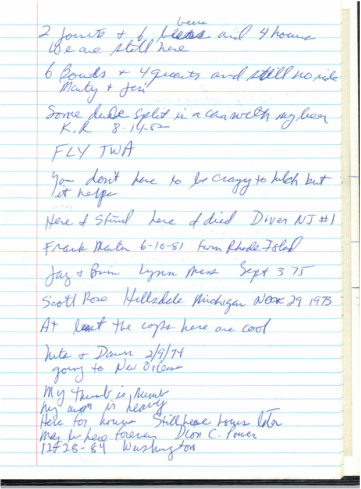 2 Joints + 6 beers and 4 hours
We are still here
6 Bowls + 4 quarts and still no ride
Marty + Jim
Some dude split in a car with my beer
K.R 8-14-82
FLY TWA
You don't have to be crazy to hitch but
it helps
Here I Stand here I died Diver NJ #1
Frank Martin 6-10-81 from Rhode Island
Jay & Brin Lynn Mass Sept 3 75
Scott Rose Hillsdale Michigan NOV 29 1973
At least the cops here are cool
+ Dawn 2/9/74
going to New Orleans
My thumb is numb
my arm is heavy
Here for hours Still here hours later
may be here forever Dion C. Power
12-28-84 Washington